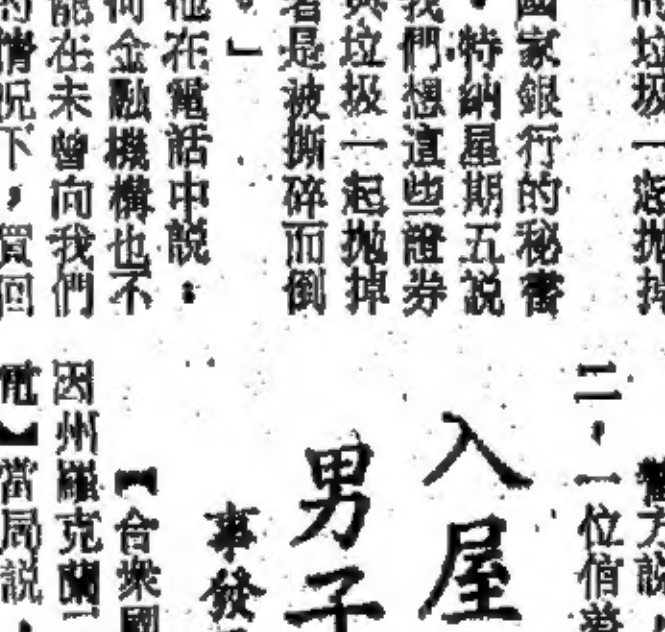 的垃圾一起拋掉
國家銀行的秘書
特納星期五說
我們想這些證券
與垃圾一起拋掉
者是被撕碎而倒
。」
他在電話中說：
何金融機構也不
能在未曾向我們
的情況下，買回
警方說，
二，一位伯
入屋
男子
事發
【合眾國
因州羅克蘭
電】當局說，